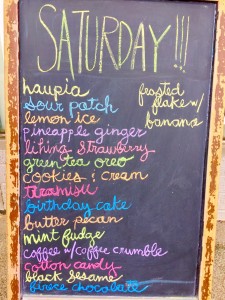 SATURDAY!!!
haupia
sour patch
lemon ice
pineapple ginger
lihing strawberry
green tea oreo
cookies & cream
tiramisu
birthday cake
butter pecan
mint fudge
coffee w/coffee crumble
cotton candy
black sesame
chocolate
frosted
flake w/
banana